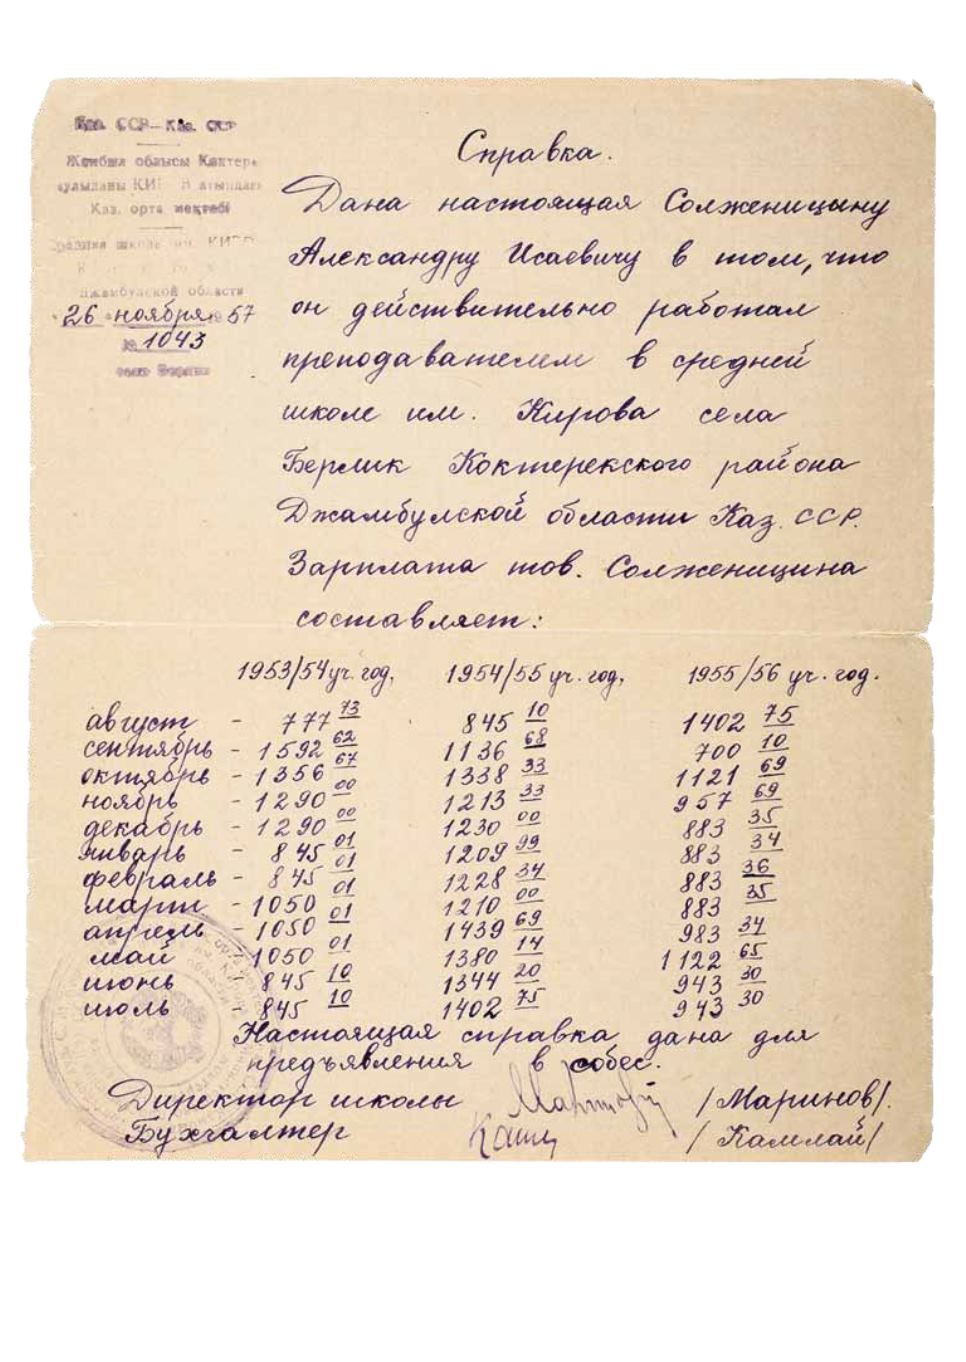 Каз. ССР – Каз. ССР
облысы
КИР
Каз. орта мектебі
школа им. КИРО
Джамбулской области
26 ноября 1957
№ 1043
село Берлик
Справка.
Дана настоящая Солженицыну
Александру Исаевичу в том, что
он действительно работал
преподавателем в средней
школе им. Кирова села
Берлик Коктерекского района
Джамбулской области Каз. ССР.
Зарплата тов. Солженицина
составляет:
1953/54 уч. год, 1954/55 уч. год, 1955/56 уч. год.
август - 777 73 845 10 1402 75
сентябрь - 1592 62 1136 68 700 10
октябрь - 1356 67 1338 33 1121 69
ноябрь - 1290 00 1213 33 957 69
декабрь - 1290 00 1230 00 883 35
январь - 845 01 1209 99 883 34
февраль - 845 01 1228 34 883 36
март - 1050 01 1210 00 883 35
апрель - 1050 01 1439 69 983 34
май - 1050 01 1380 14 1122 65
июнь - 845 10 1344 20 943 30
июль - 845 10 1402 75 943 30
Настоящая справка дана для
предъявления в собес.
Директор школы /Маринов/.
Бухгалтер /Камлай/